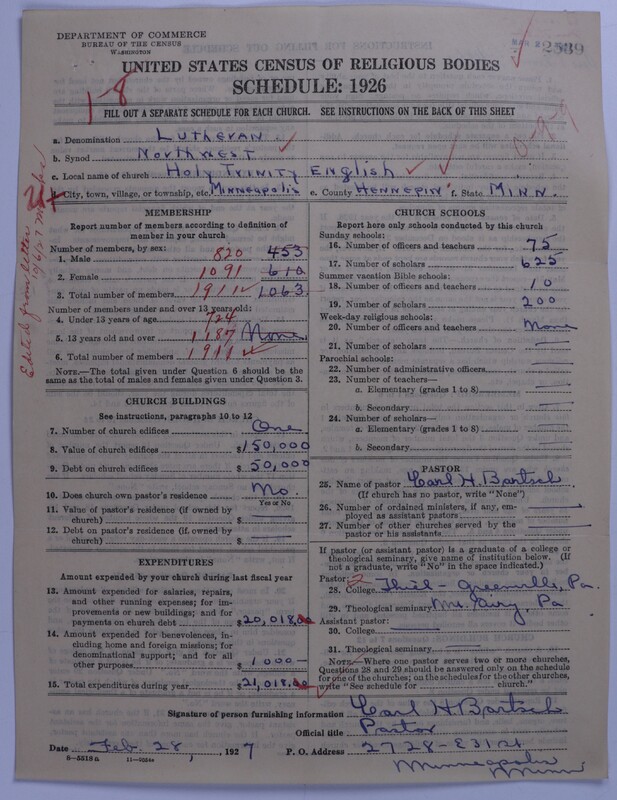 DEPARTMENT OF COMMERCE
BUREAU OF THE CENSUS
WASHINGTON
MAR 2539
UNITED STATES CENSUS OF RELIGIOUS BODIES
SCHEDULE: 1926
1-8
FILL OUT A SEPARATE SCHEDULE FOR EACH CHURCH. SEE INSTRUCTIONS ON THE BACK OF THIS SHEET
a. Denomination LUTHERAN
b. Synod NORTHWEST
0-9-9
c. Local name of church HOLY TRINITY ENGLISH
d. City, town, village, or township, etc. MINNEAPOLIS e. County HENNEPIN f. State MINN.
Edited from letter 10/6/27
MEMBERSHIP
Report number of members according to definition of
member in your church
Number of members, by sex:
1. Male 820 453
2. Female 1091 610
3. Total number of members 1911 1063
Number of members under and over 13 years old:
4. Under 13 years of age 724
5. 13 years old and over 1187 None
6. Total number of members 1911
NOTE.—The total given under Question 6 should be the
same as the total of males and females given under Question 3.
CHURCH BUILDINGS
See instructions, paragraphs 10 to 12
7. Number of church edifices One
8. Value of church edifices $150,000
9. Debt on church edifices $ 50,000
10. Does church own pastor's residence No
Yes or No
11. Value of pastor's residence (if owned by
church) $
12. Debt on pastor's residence (if owned by
church) $
EXPENDITURES
Amount expended by your church during last fiscal year
13. Amount expended for salaries, repairs,
and other running expenses; for im-
provements or new buildings; and for
payments on church debt $20,018.00
14. Amount expended for benevolences, in-
cluding home and foreign missions; for
denominational support; and for all
other purposes 1000—
15. Total expenditures during year $21,018.00
CHURCH SCHOOLS
Report here only schools conducted by this church
Sunday schools:
16. Number of officers and teachers 75
17. Number of scholars 625
Summer vacation Bible schools:
18. Number of officers and teachers 10
19. Number of scholars 200
Week-day religious schools:
20. Number of officers and teachers None
21. Number of scholars
Parochial schools:
22. Number of administrative officers
23. Number of teachers—
a. Elementary (grades 1 to 8)
b. Secondary
24. Number of scholars—
a. Elementary (grades 1 to 8)
b. Secondary
PASTOR
25. Name of pastor Carl H. Bartsch
(If church has no pastor, write "None")
26. Number of ordained ministers, if any, em-
ployed as assistant pastors
27. Number of other churches served by the
pastor or his assistants
If pastor (or assistant pastor) is a graduate of a college or
theological seminary, give name of institution below. (If
not a graduate, write "No" in the space indicated.)
Pastor: 2
28. College Thiel - Greenville, Pa.
29. Theological seminary Mt. Airy, Pa
Assistant pastor:
30. College
31. Theological seminary
NOTE.—Where one pastor serves two or more churches,
Questions 28 and 29 should be answered only on the schedule
for one of the churches; on the schedules for the other churches,
write "See schedule for church."
Signature of person furnishing information Carl H Bartsch
Official title Pastor
Date Feb. 28, 1927 P. O. Address 2728-E31st
Minneapolis
Minn
8—5318a 11—9354